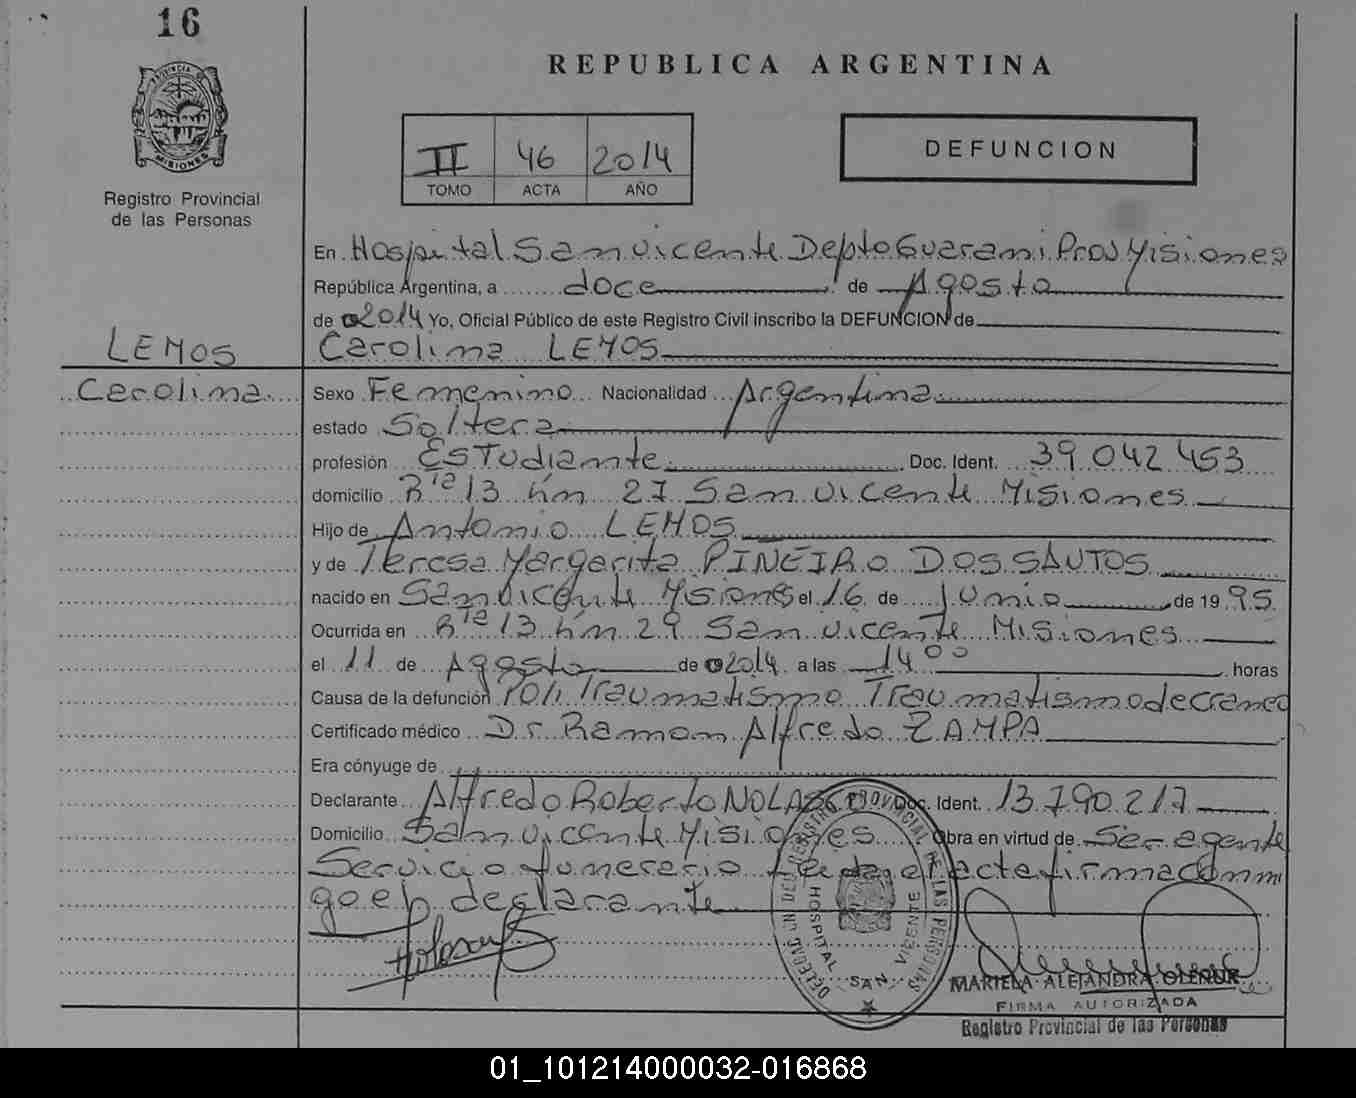 16
PROVINCIA DE
MISIONES
Registro Provincial
de las Personas
REPUBLICA ARGENTINA
II 46 2014
TOMO ACTA AÑO
DEFUNCION
En Hospital San vicente Depto Guarani Prov Misiones
República Argentina, a doce de Agosto
de 2014 Yo, Oficial Público de este Registro Civil inscribo la DEFUNCION de
LEMOS Carolina LEMOS
Carolina Sexo Femenino Nacionalidad Argentina
estado Soltera
profesión Estudiante Doc. Ident. 39 042 453
domicilio Rta 13 km 27 San vicente Misiones
Hijo de Antonio LEMOS
y de Teresa Margarita PINEIRO DOS SANTOS
nacido en San vicente Misiones el 16 de Junio de 1995
Ocurrida en Rta 13 km 29 San vicente Misiones
el 11 de Agosto de 2014 a las 14 00 horas
Causa de la defunción Poli Traumatismo Traumatismo de craneo
Certificado médico Dr Ramon Alfredo ZAMPA
Era cónyuge de
Declarante Alfredo Roberto NOLASCO Doc. Ident. 13.790.217
Domicilio San vicente Misiones Obra en virtud de Ser agente
Servicio funerario Leida el acta firma conmi
go el declarante
DELEGACION DEL REGISTRO PROVINCIAL DE LAS PERSONAS
HOSPITAL SAN VICENTE
MARIELA ALEJANDRA
FIRMA AUTORIZADA
Registro Provincial de las Personas
01_101214000032-016868